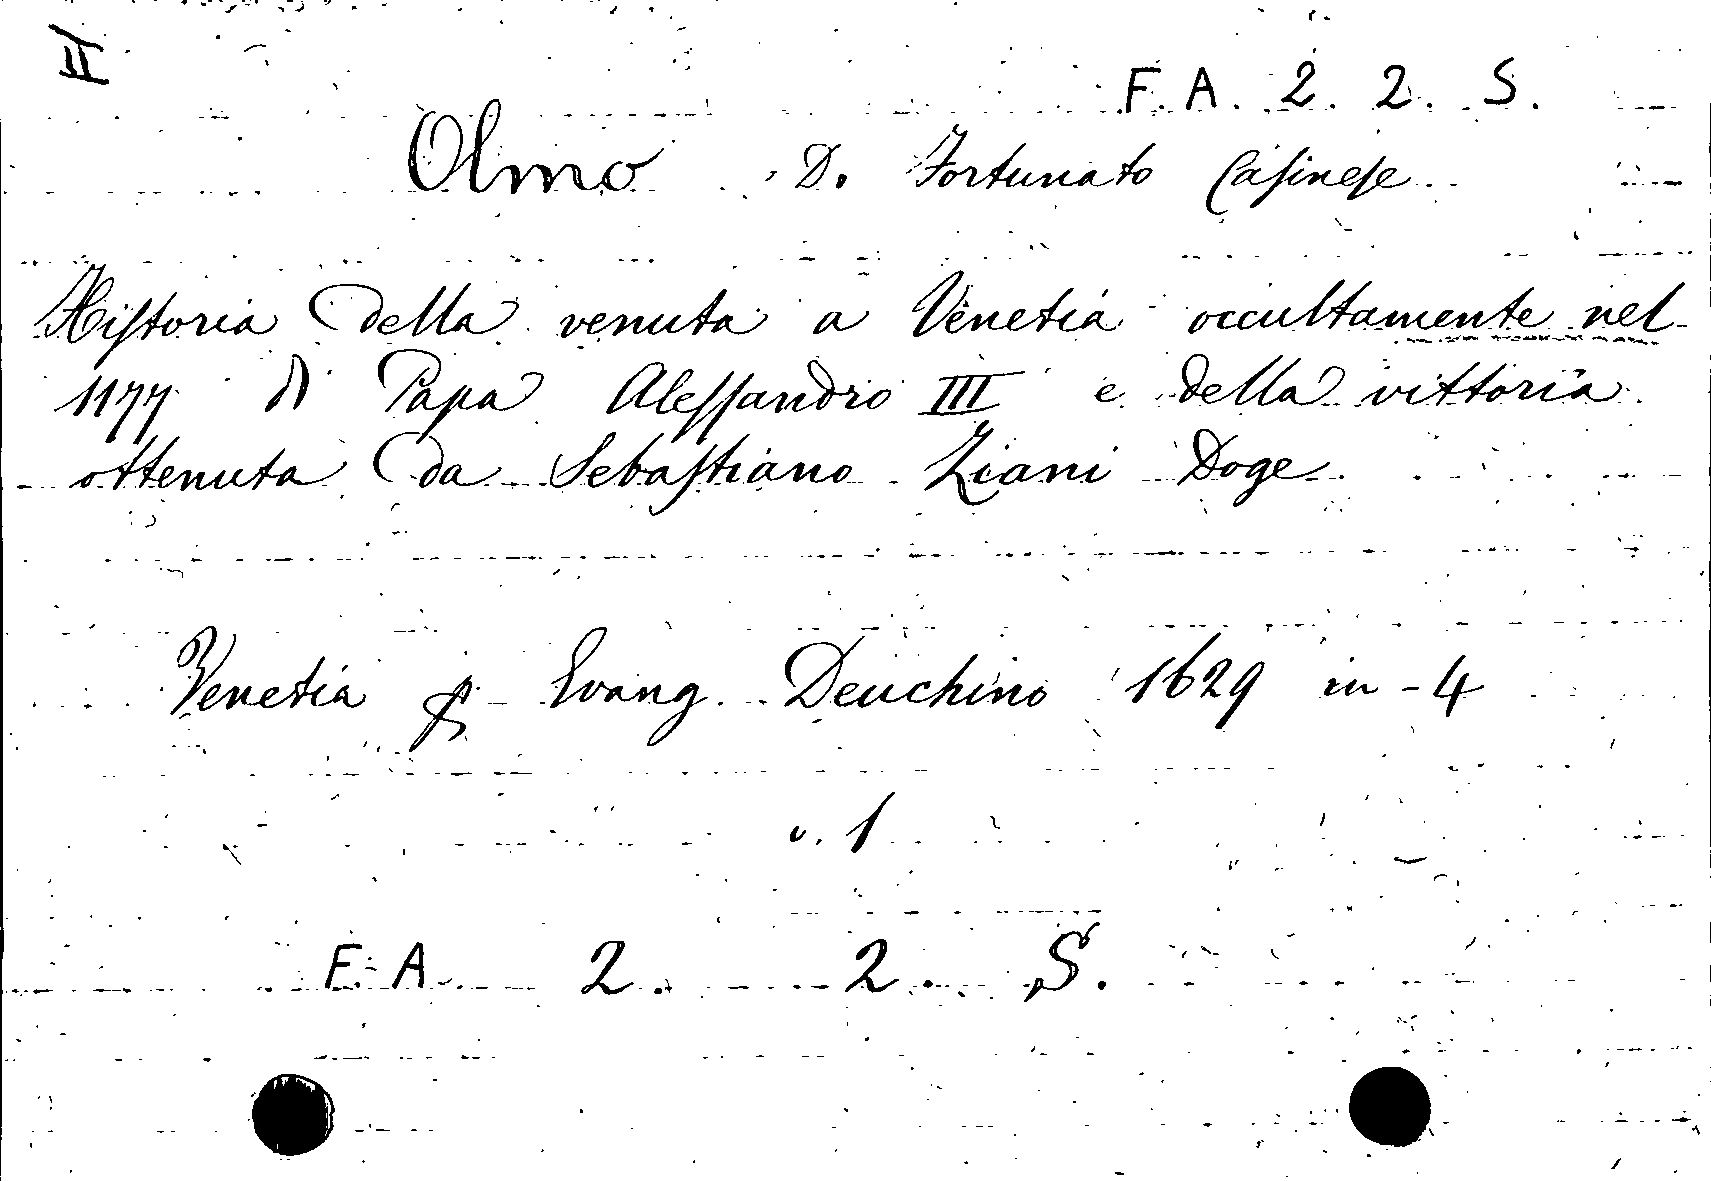 II
F. A. 2. 2. S.
Olmo D. Fortunato Casinese
Historia della venuta a Venetia occultamente nel
1177 di Papa Alessandro III e della vittoria
ottenuta da Sebastiano Ziani Doge
Venetia p Evang. Deuchino 1629 in-4
v. 1
F. A. 2. 2. S.